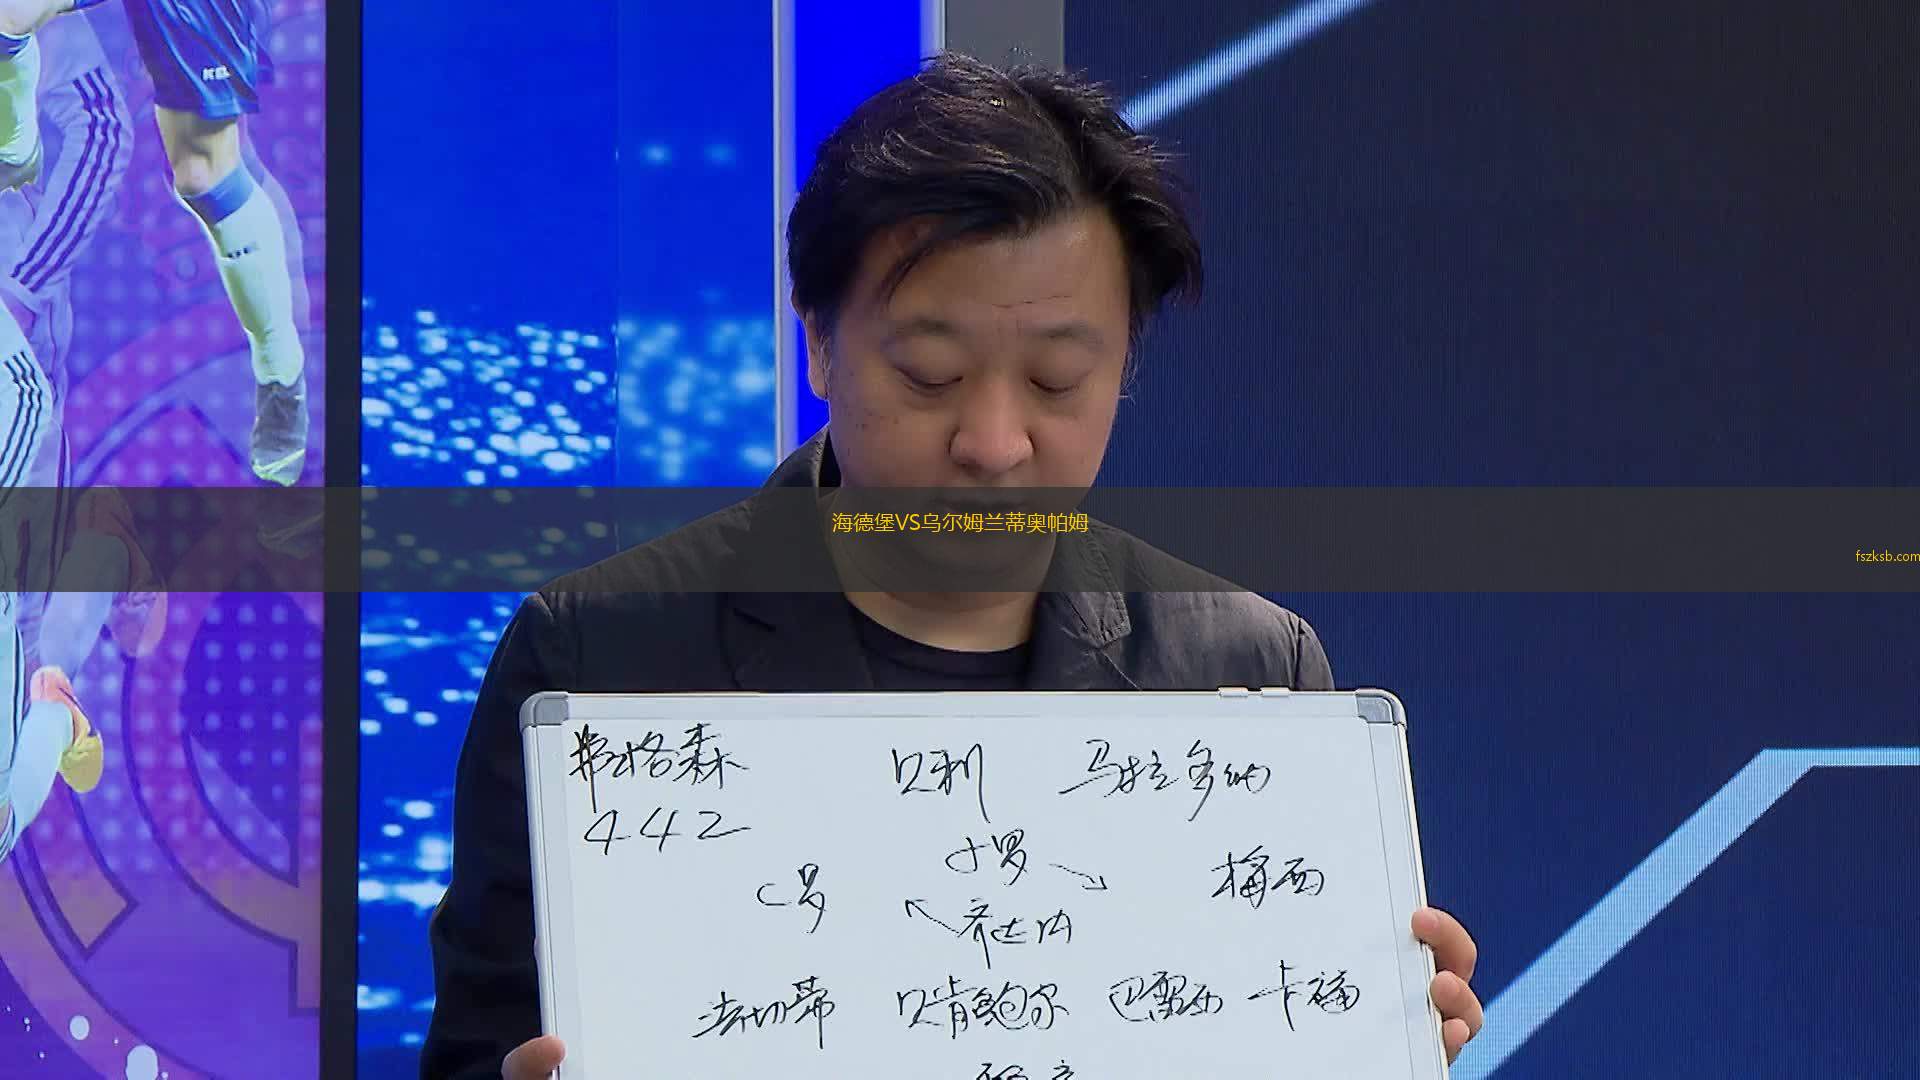 海德堡VS乌尔姆兰蒂奥帕姆
fszksb.com
弗格森 贝利 马拉多纳
442
小罗
C罗 梅西
齐达内
法切蒂 贝肯鲍尔 巴雷西 卡福